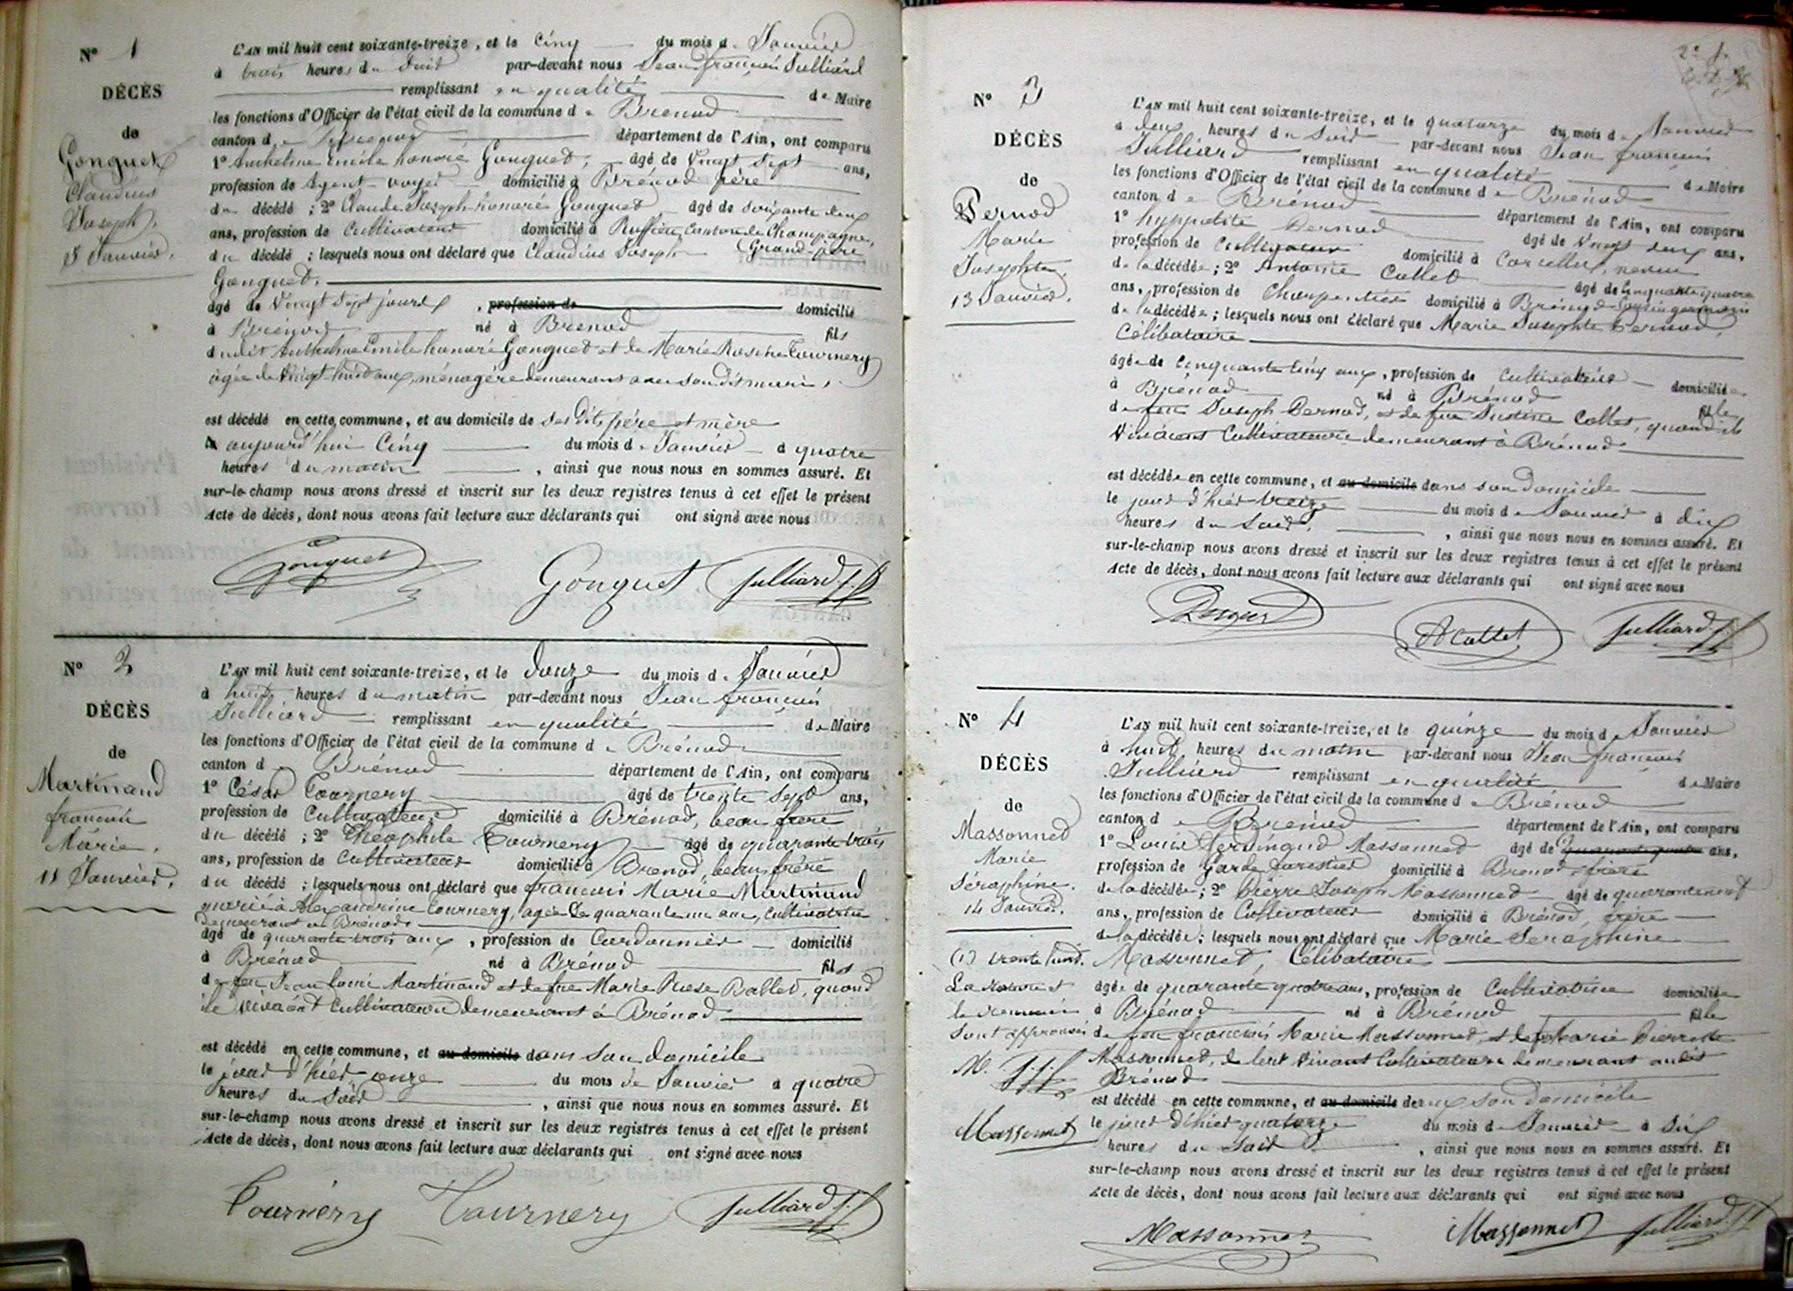 N° 1
DÉCÈS
de
Gonguet
Claudius
Joseph.
5 Janvier.
L'AN mil huit cent soixante-treize, et le Cinq du mois de Janvier
à trois heures du Soir par-devant nous Jean françois Julliard
remplissant en qualité de Maire
les fonctions d'Officier de l'état civil de la commune de Brénod
canton de Brénod département de l'Ain, ont comparu
1° Anthelme Emile honoré Gonguet, âgé de Vingt Sept ans,
profession de Agent-voyer domicilié à Brénod père
du décédé ; 2° Claude Joseph honoré Gonguet âgé de soixante deux
ans, profession de Cultivateur domicilié à Ruffieu, Canton de Champagne,
du décédé ; lesquels nous ont déclaré que Claudius Joseph Grand-père
Gonguet.
âgé de Vingt Sept jours, profession de domicilié
à Brénod né à Brenod fils
dudit Anthelme Emile honoré Gonguet et de Marie Rosine Tournery
agée de Vingt-huit ans, ménagère demeurant avec son dit mari,
est décédé en cette commune, et au domicile de ses dits père et mère
aujourd'hui Cinq du mois de Janvier à quatre
heures du matin, ainsi que nous nous en sommes assuré. Et
sur-le-champ nous avons dressé et inscrit sur les deux registres tenus à cet effet le présent
Acte de décès, dont nous avons fait lecture aux déclarants qui ont signé avec nous
Gonguet Gonguet Julliard j. f.
N° 2
DÉCÈS
de
Martinand
françois
Marie.
11 Janvier.
L'AN mil huit cent soixante-treize, et le douze du mois de Janvier
à huit heures du matin par-devant nous Jean françois
Julliard remplissant en qualité de Maire
les fonctions d'Officier de l'état civil de la commune de Brénod
canton de Brénod département de l'Ain, ont comparu
1° César Tournery âgé de trente Sept ans,
profession de Cultivateur domicilié à Brénod, beau frère
du décédé ; 2° Théophile Tournery âgé de quarante trois
ans, profession de Cultivateur domicilié à Brenod, beau frère
du décédé ; lesquels nous ont déclaré que françois Marie Martinand
marié à Alexandrine Tournery, agée de quarante un ans, Cultivatrice
demeurant à Brénod
âgé de quarante trois ans, profession de Cordonnier domicilié
à Brénod né à Brénod fils
de feu Jean Louis Martinand et de fue Marie Rose Ballet, quand
ils vivaient Cultivateurs demeurant à Brénod
est décédé en cette commune, et au domicile dans son domicile
le jour d'hier onze du mois de Janvier à quatre
heures du Soir, ainsi que nous nous en sommes assuré. Et
sur-le-champ nous avons dressé et inscrit sur les deux registres tenus à cet effet le présent
Acte de décès, dont nous avons fait lecture aux déclarants qui ont signé avec nous
Tournery Tournery Julliard j. f.
N° 3
DÉCÈS
de
Pernod
Marie
Josephte.
13 Janvier.
L'AN mil huit cent soixante-treize, et le quatorze du mois de Janvier
à deux heures du Soir par-devant nous Jean françois
Julliard remplissant en qualité de Maire
les fonctions d'Officier de l'état civil de la commune de Brénod
canton de Brénod département de l'Ain, ont comparu
1° hyppolite Pernod âgé de Vingt deux ans,
profession de Cultivateur domicilié à Corcelles, neveu
de la décédée ; 2° Antoine Collet âgé de Cinquante quatre
ans, profession de Charpentier domicilié à Brénod Cousin germain
de la décédée ; lesquels nous ont déclaré que Marie Josephte Pernod,
Célibataire
âgée de Cinquante cinq ans, profession de Cultivatrice domiciliée
à Brénod né à Brénod fille
de feu Joseph Pernod, et de fue Justine Collet, quand ils
Vivaient Cultivateurs demeurant à Brénod
est décédée en cette commune, et au domicile dans son domicile
le jour d'hier treize du mois de Janvier à dix
heures du Soir, ainsi que nous nous en sommes assuré. Et
sur-le-champ nous avons dressé et inscrit sur les deux registres tenus à cet effet le présent
Acte de décès, dont nous avons fait lecture aux déclarants qui ont signé avec nous
A Collet Julliard j. f.
N° 4
DÉCÈS
de
Massonnet
Marie
Séraphine.
14 Janvier.
(1) trente huit.
La rature et
le renvoi
sont approuvés
M. J.j.f.
Massonnet
L'AN mil huit cent soixante-treize, et le quinze du mois de Janvier
à huit heures du matin par-devant nous Jean françois
Julliard remplissant en qualité de Maire
les fonctions d'Officier de l'état civil de la commune de Brénod
canton de Brénod département de l'Ain, ont comparu
1° Louis Ferdinand Massonnet âgé de quarante quatre ans,
profession de Garde forestier domicilié à Brenod, frère
de la décédée ; 2° Pierre Joseph Massonnet âgé de quarante neuf
ans, profession de Cultivateur domicilié à Brénod, frère
de la décédée ; lesquels nous ont déclaré que Marie Séraphine
Massonnet, Célibataire
âgée de quarante quatre ans, profession de Cultivatrice domiciliée
à Brénod né à Brénod fille
de feu françois Marie Massonnet, et de fue Marie Pierrette
Massonnet, de leur vivant Cultivateurs demeurant audit
Brénod
est décédé en cette commune, et au domicile dans son domicile
le jour d'hier quatorze du mois de Janvier à six
heures du Soir, ainsi que nous nous en sommes assuré. Et
sur-le-champ nous avons dressé et inscrit sur les deux registres tenus à cet effet le présent
Acte de décès, dont nous avons fait lecture aux déclarants qui ont signé avec nous
Massonnet Massonnet Julliard j. f.